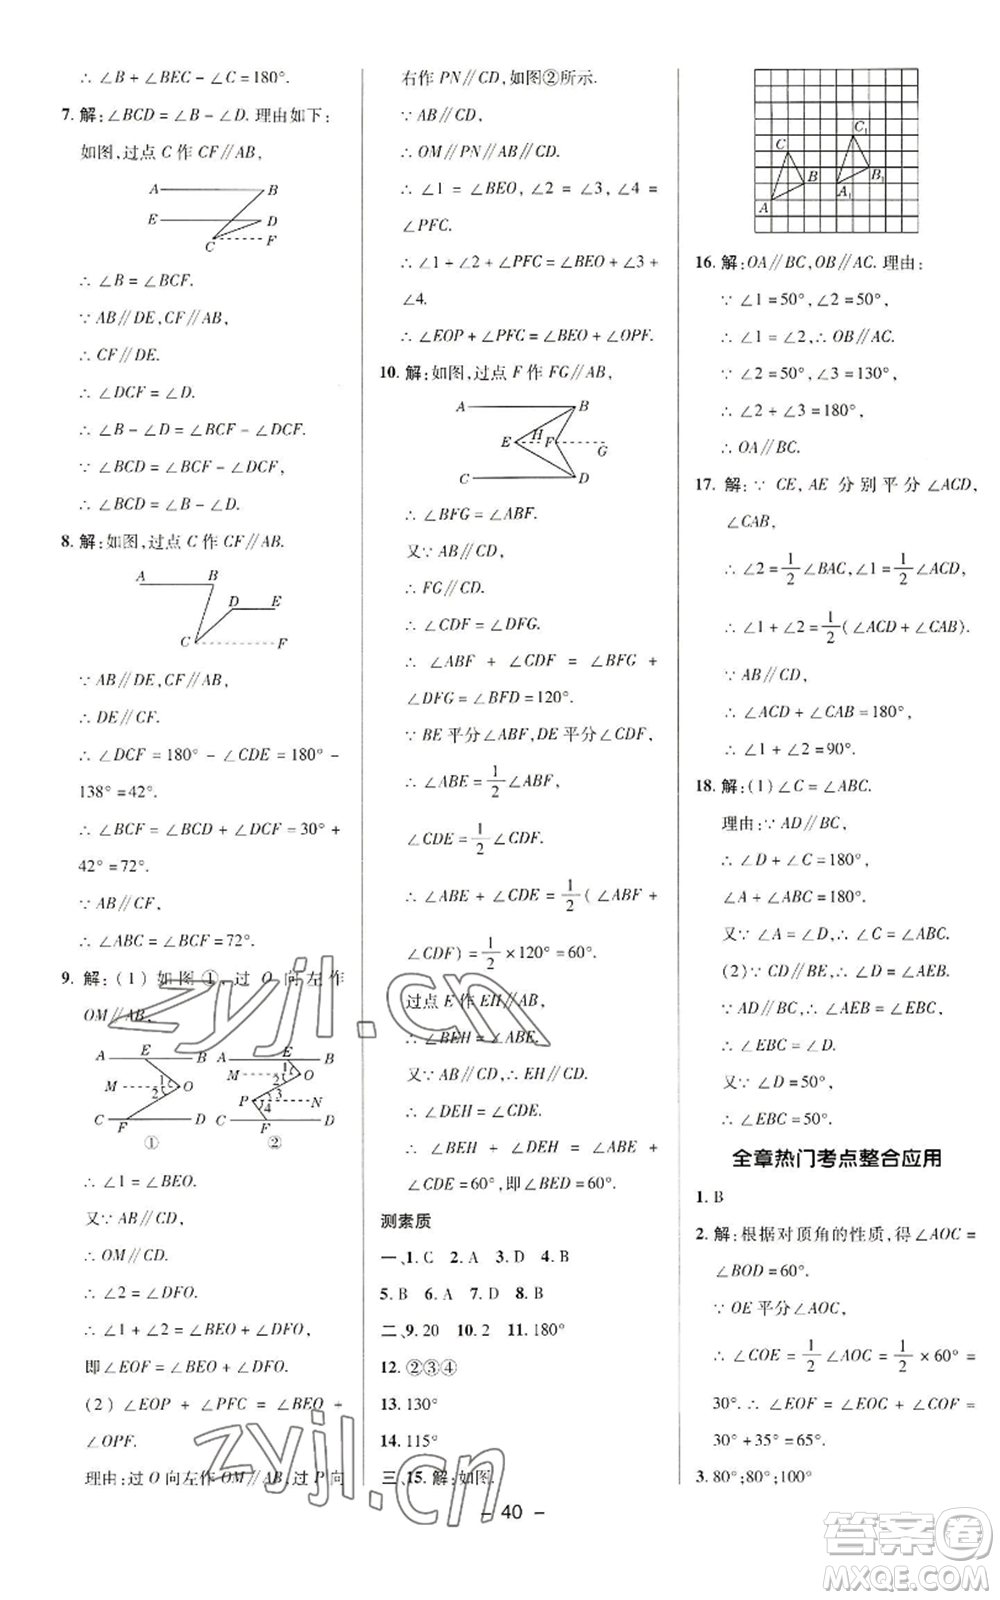 ∴ ∠B + ∠BEC − ∠C = 180°.
7. 解: ∠BCD = ∠B − ∠D. 理由如下:
如图, 过点 C 作 CF∥AB,
A B
E D
C F
∴ ∠B = ∠BCF.
∵ AB∥DE, CF∥AB,
∴ CF∥DE.
∴ ∠DCF = ∠D.
∴ ∠B − ∠D = ∠BCF − ∠DCF.
∵ ∠BCD = ∠BCF − ∠DCF,
∴ ∠BCD = ∠B − ∠D.
8. 解: 如图, 过点 C 作 CF∥AB.
A B
D E
C F
∵ AB∥DE, CF∥AB,
∴ DE∥CF.
∴ ∠DCF = 180° − ∠CDE = 180° −
138° = 42°.
∴ ∠BCF = ∠BCD + ∠DCF = 30° +
42° = 72°.
∵ AB∥CF,
∴ ∠ABC = ∠BCF = 72°.
9. 解: (1) 如图①, 过 O 向左作
OM∥AB,
A E B
M 1 2 O
C F D
①
A E B
M 1 2 O
P 3 4 N
C F D
②
∴ ∠1 = ∠BEO.
又∵ AB∥CD,
∴ OM∥CD.
∴ ∠2 = ∠DFO.
∴ ∠1 + ∠2 = ∠BEO + ∠DFO,
即∠EOF = ∠BEO + ∠DFO.
(2) ∠EOP + ∠PFC = ∠BEO +
∠OPF.
理由: 过 O 向左作 OM∥AB, 过 P 向
右作 PN∥CD, 如图②所示.
∵ AB∥CD,
∴ OM∥PN∥AB∥CD.
∴ ∠1 = ∠BEO, ∠2 = ∠3, ∠4 =
∠PFC.
∴ ∠1 + ∠2 + ∠PFC = ∠BEO + ∠3 +
∠4.
∴ ∠EOP + ∠PFC = ∠BEO + ∠OPF.
10. 解: 如图, 过点 F 作 FG∥AB,
A B
E H F G
C D
∴ ∠BFG = ∠ABF.
又∵ AB∥CD,
∴ FG∥CD.
∴ ∠CDF = ∠DFG.
∴ ∠ABF + ∠CDF = ∠BFG +
∠DFG = ∠BFD = 120°.
∵ BE 平分∠ABF, DE 平分∠CDF,
∴ ∠ABE = 1/2 ∠ABF,
∠CDE = 1/2 ∠CDF.
∴ ∠ABE + ∠CDE = 1/2 (∠ABF +
∠CDF) = 1/2 × 120° = 60°.
过点 E 作 EH∥AB,
∴ ∠BEH = ∠ABE.
又∵ AB∥CD, ∴ EH∥CD.
∴ ∠DEH = ∠CDE.
∴ ∠BEH + ∠DEH = ∠ABE +
∠CDE = 60°, 即∠BED = 60°.
测素质
一、1. C 2. A 3. D 4. B
5. B 6. A 7. D 8. B
二、9. 20 10. 2 11. 180°
12. ②③④
13. 130°
14. 115°
三、15. 解: 如图.
C C₁
B B₁
A A₁
16. 解: OA∥BC, OB∥AC. 理由:
∵ ∠1 = 50°, ∠2 = 50°,
∴ ∠1 = ∠2, ∴ OB∥AC.
∵ ∠2 = 50°, ∠3 = 130°,
∴ ∠2 + ∠3 = 180°,
∴ OA∥BC.
17. 解: ∵ CE, AE 分别平分∠ACD,
∠CAB,
∴ ∠2 = 1/2 ∠BAC, ∠1 = 1/2 ∠ACD,
∴ ∠1 + ∠2 = 1/2 (∠ACD + ∠CAB).
∵ AB∥CD,
∴ ∠ACD + ∠CAB = 180°,
∴ ∠1 + ∠2 = 90°.
18. 解: (1) ∠C = ∠ABC.
理由: ∵ AD∥BC,
∴ ∠D + ∠C = 180°,
∠A + ∠ABC = 180°.
又∵ ∠A = ∠D, ∴ ∠C = ∠ABC.
(2) ∵ CD∥BE, ∴ ∠D = ∠AEB.
∵ AD∥BC, ∴ ∠AEB = ∠EBC,
∴ ∠EBC = ∠D.
又∵ ∠D = 50°,
∴ ∠EBC = 50°.
全章热门考点整合应用
1. B
2. 解: 根据对顶角的性质, 得∠AOC =
∠BOD = 60°.
∵ OE 平分∠AOC,
∴ ∠COE = 1/2 ∠AOC = 1/2 × 60° =
30°. ∴ ∠EOF = ∠EOC + ∠COF =
30° + 35° = 65°.
3. 80°; 80°; 100°
– 40 –
zyjl.cn
zyjl.cn
答案卷
MXQE.COM